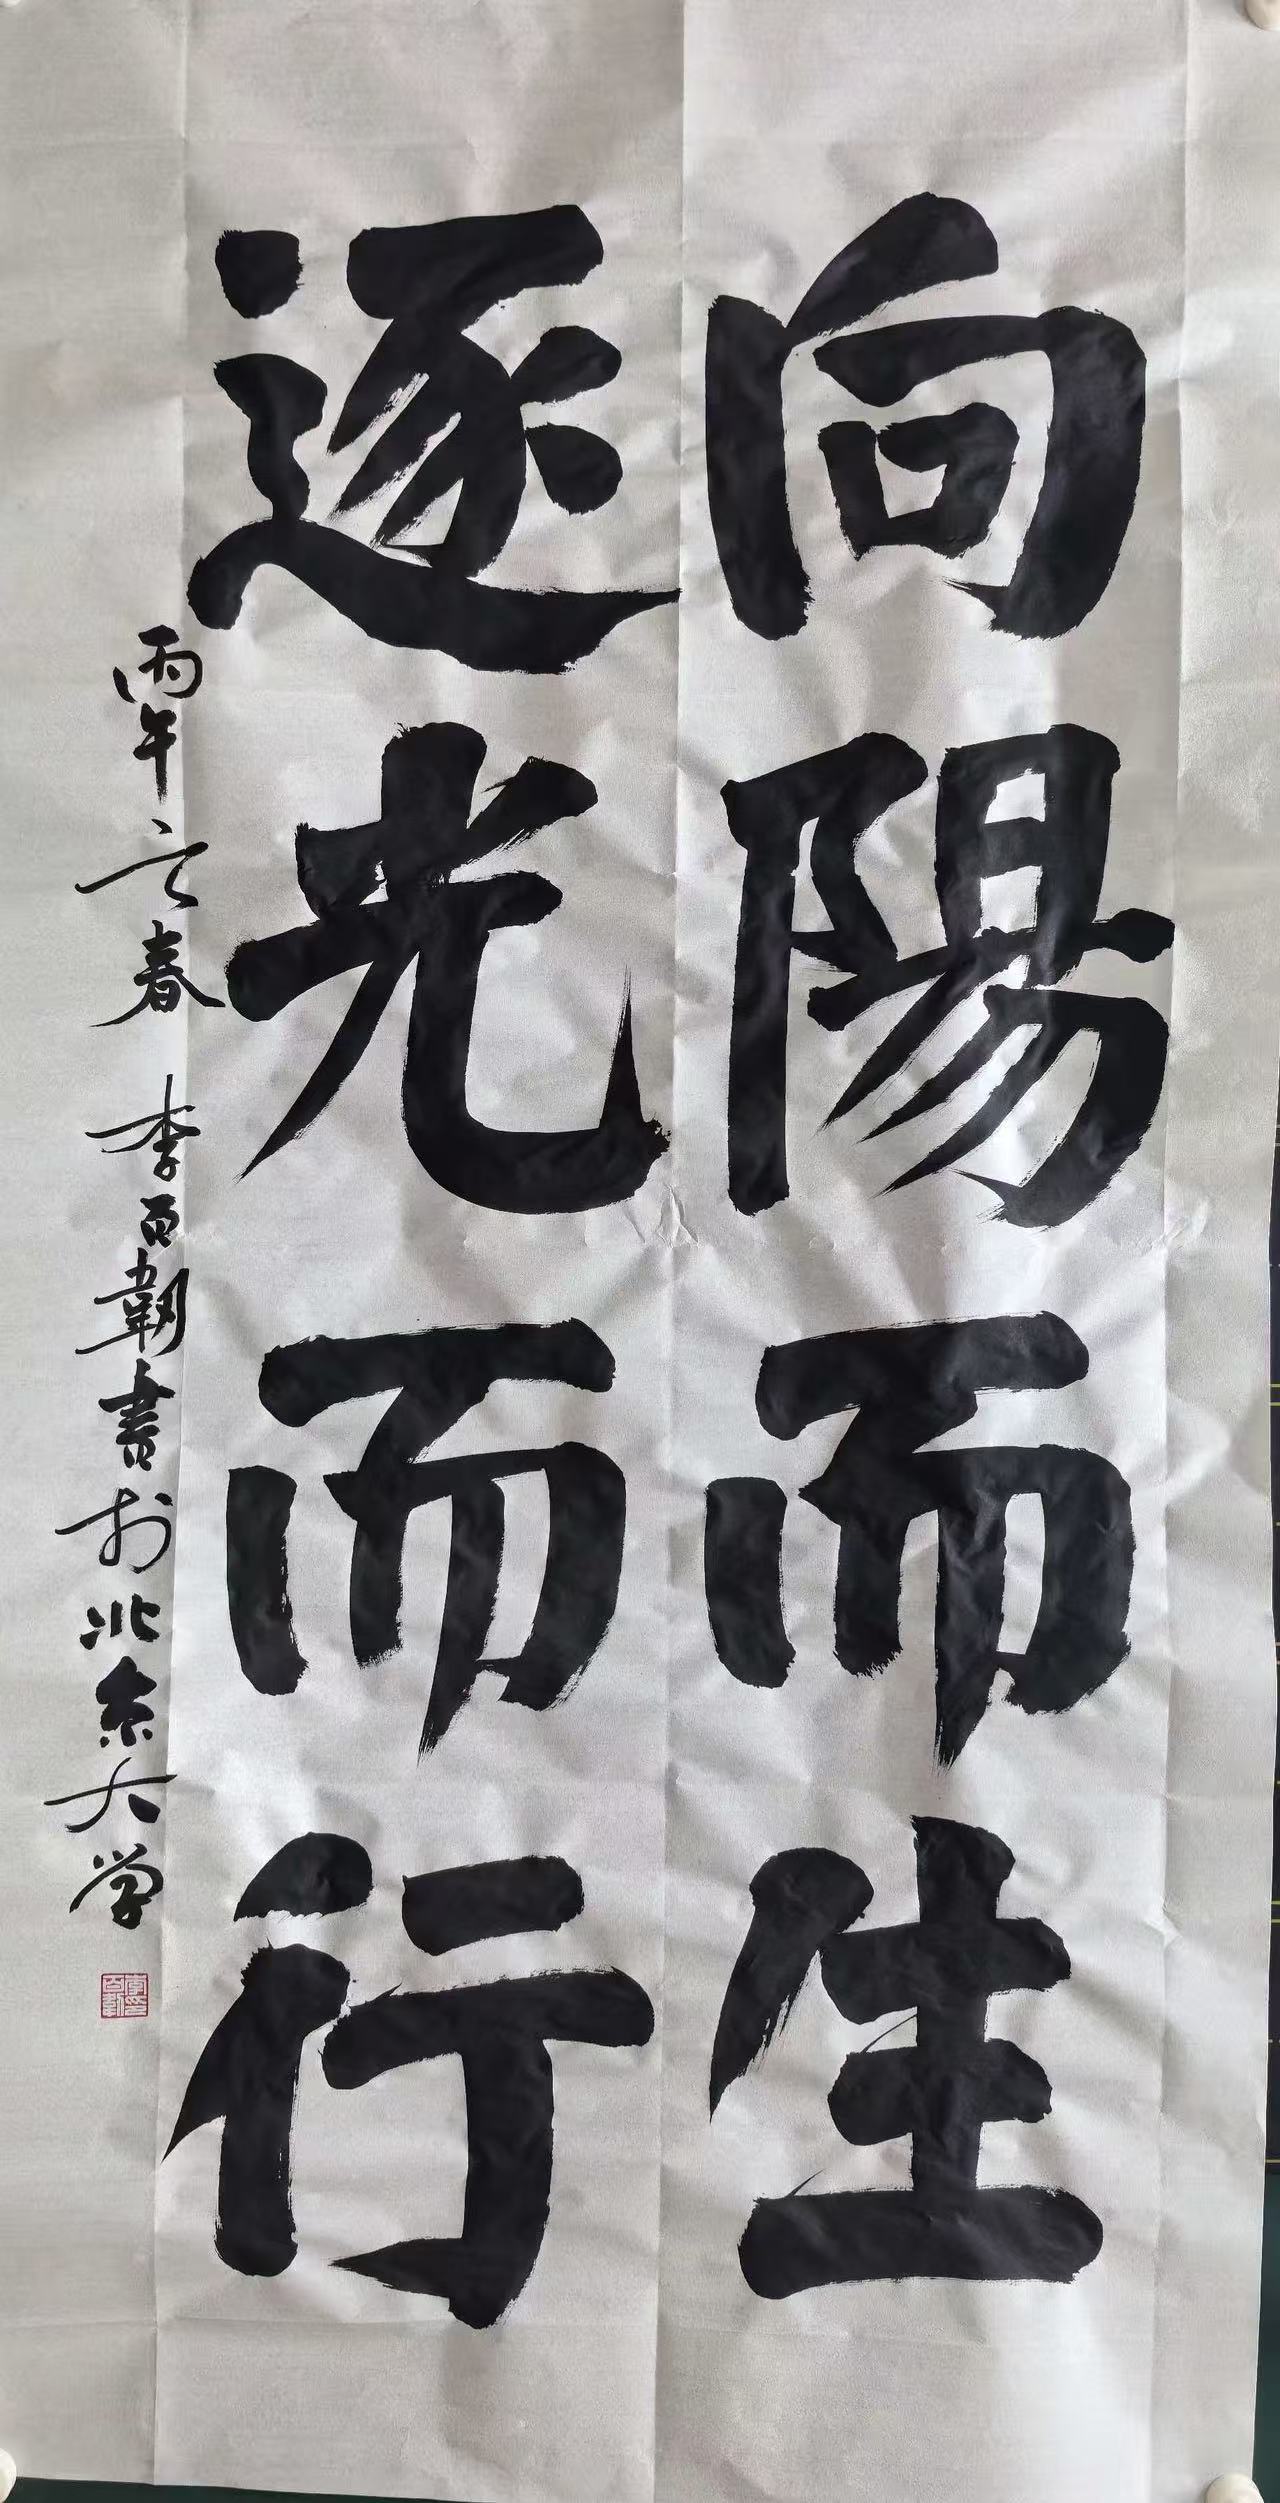 向陽而生
逐光而行
丙午立春 李百韌書於北京大学